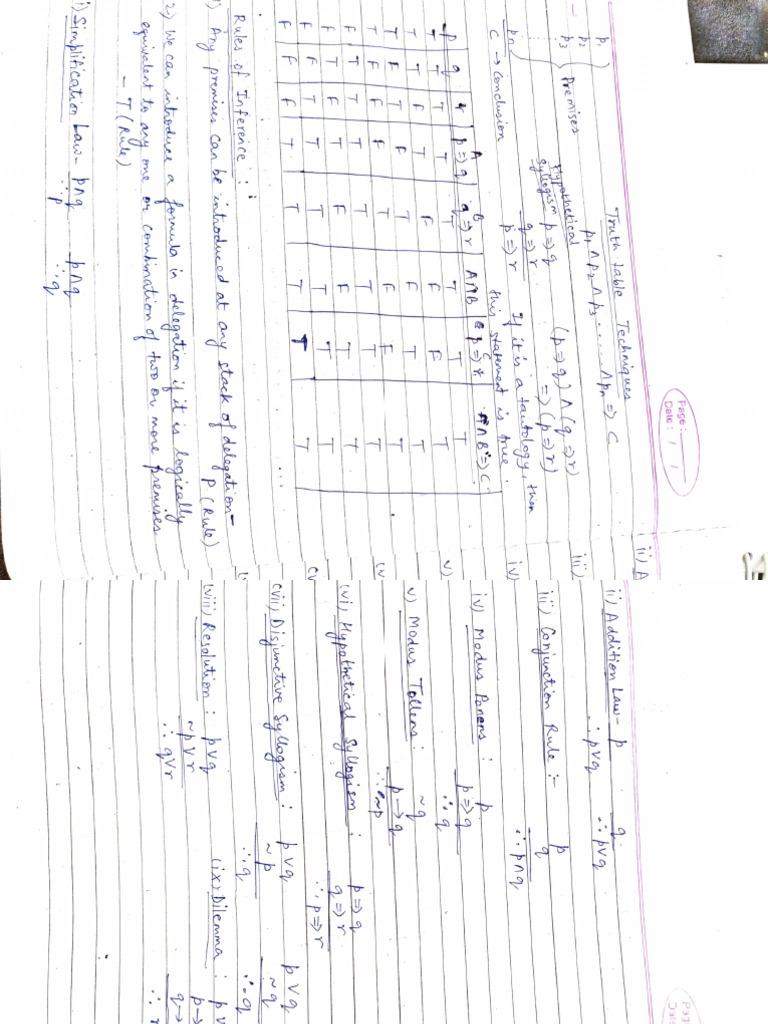 Page:
Date: / /
Truth table Techniques
p1 p1 ∧ p2 ∧ p3 ..... ∧ pn => C
p2
p3 Premises
Hypothetical
Syllogism p => q (p => q) ∧ (q => r)
q => r => (p => r)
pn p => r If it is a tautology, then
C → Conclusion this statement is true.
p q r p => q q => r A∧B p => r A∧B => C
A B C
T T T T T T T T
T T F T F F F T
T F T F T F T T
T F F F T F F T
F T T T T T T T
F T F T F F T T
F F T T T T T T
F F F T T T T T
Rules of Inference :
1) Any premises can be introduced at any stack of delegation-
P (Rule)
2) We can introduce a formula in delegation if it is logically
equivalent to any one or combination of two or more premises
- T (Rule)
i) Simplification Law- p∧q p∧q
∴ p ∴ q
ii) A
iii)
iv)
v)
ii) Addition Law- p q
∴ p∨q ∴ p∨q
iii) Conjunction Rule :- p
q
∴ p∧q
iv) Modus Ponens : p
p => q
∴ q
v) Modus Tollens : ~q
p → q
∴ ~p
(vi) Hypothetical Syllogism : p => q
q => r
∴ p => r
(vii) Disjunctive Syllogism : p∨q p∨q
~p ~q
∴ q ∴ q
(viii) Resolution : p∨q (ix) Dilemma : p∨
~p∨r p →
∴ q∨r q →
∴ r